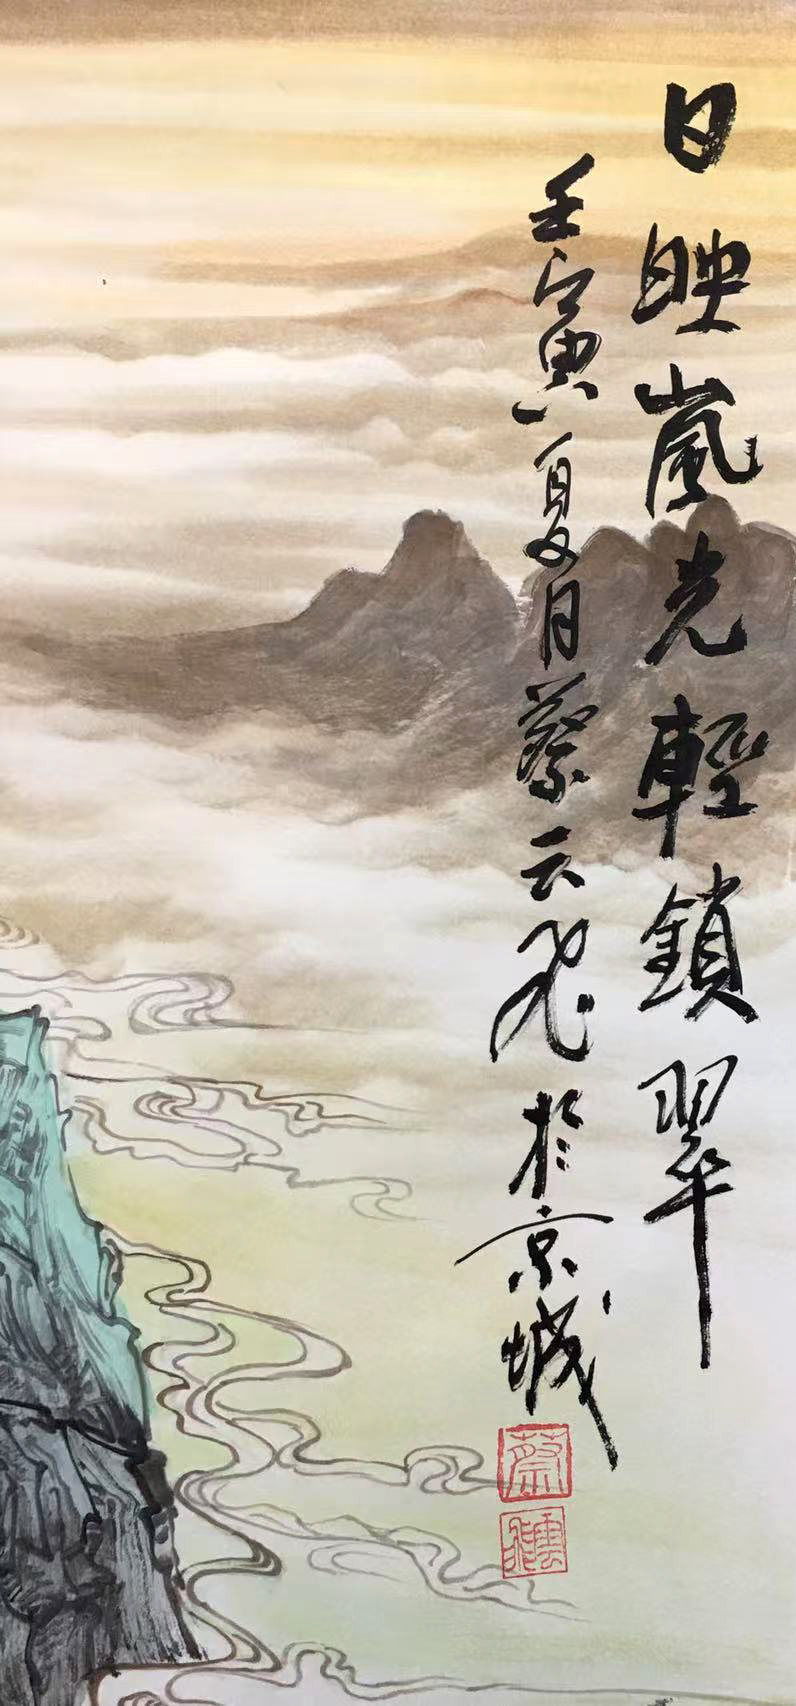 日映嵐光輕鎖翠
壬寅夏月蔡云飛於京城
蔡
雲飛